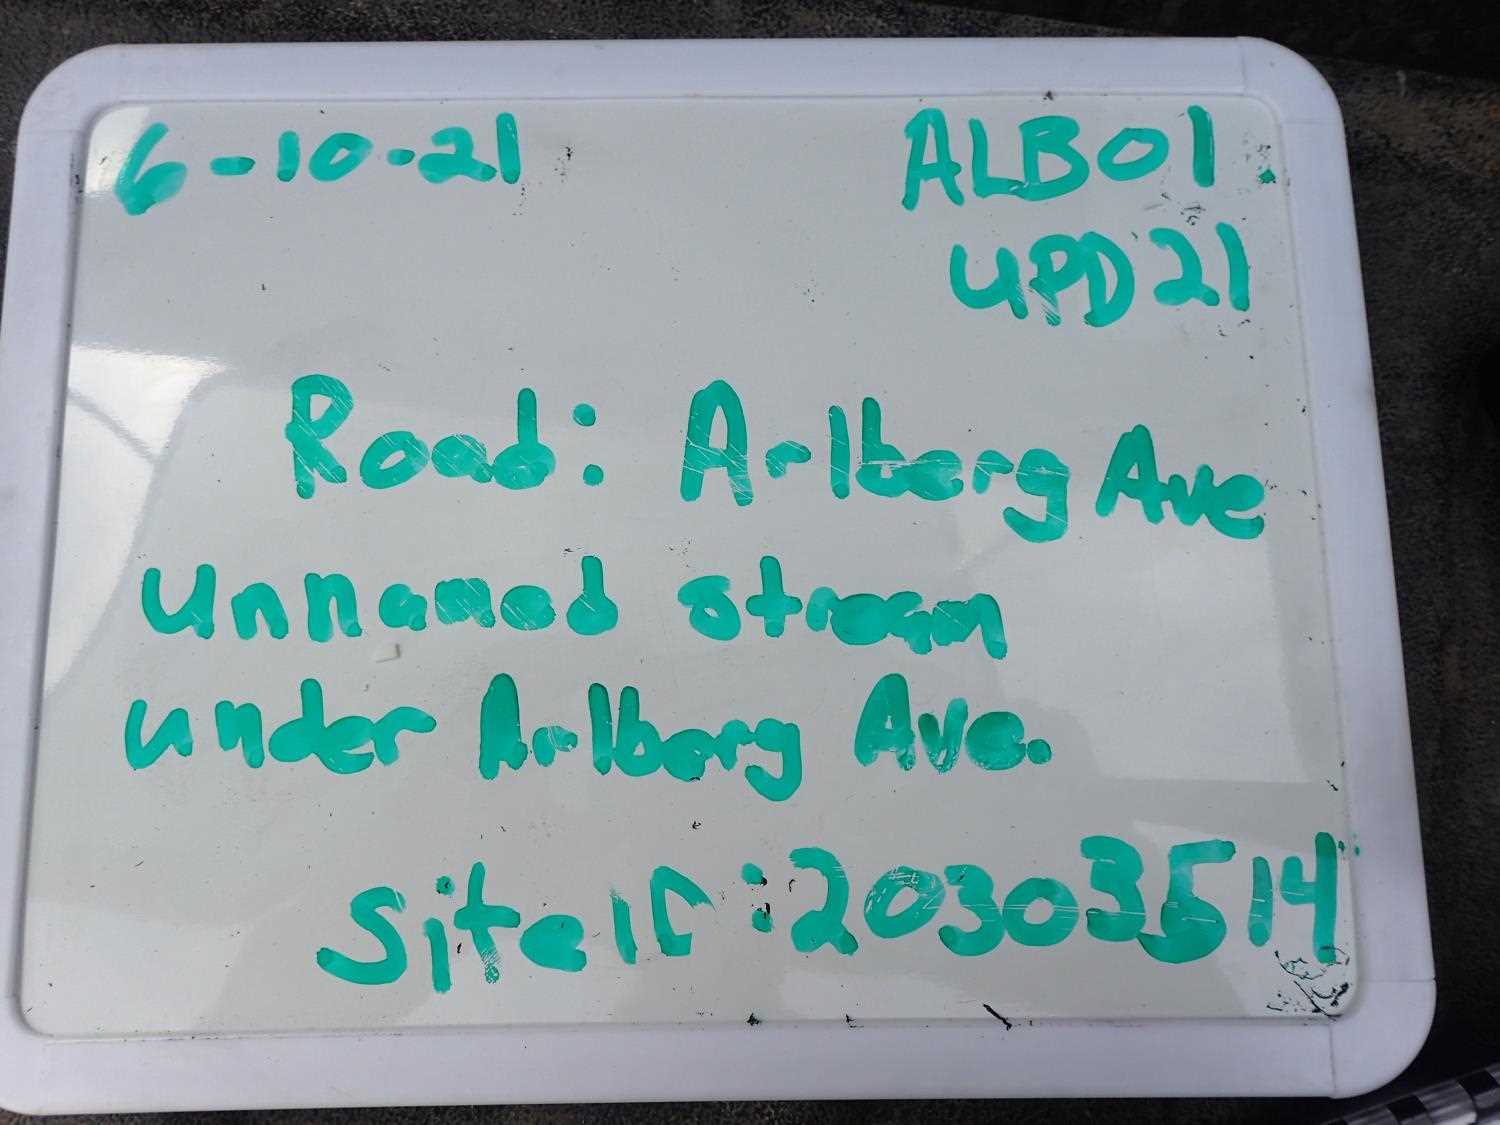 6-10-21
ALB01
UPD21
Road: Arlberg Ave
Unnamed stream
under Arlberg Ave.
SiteID:20303514